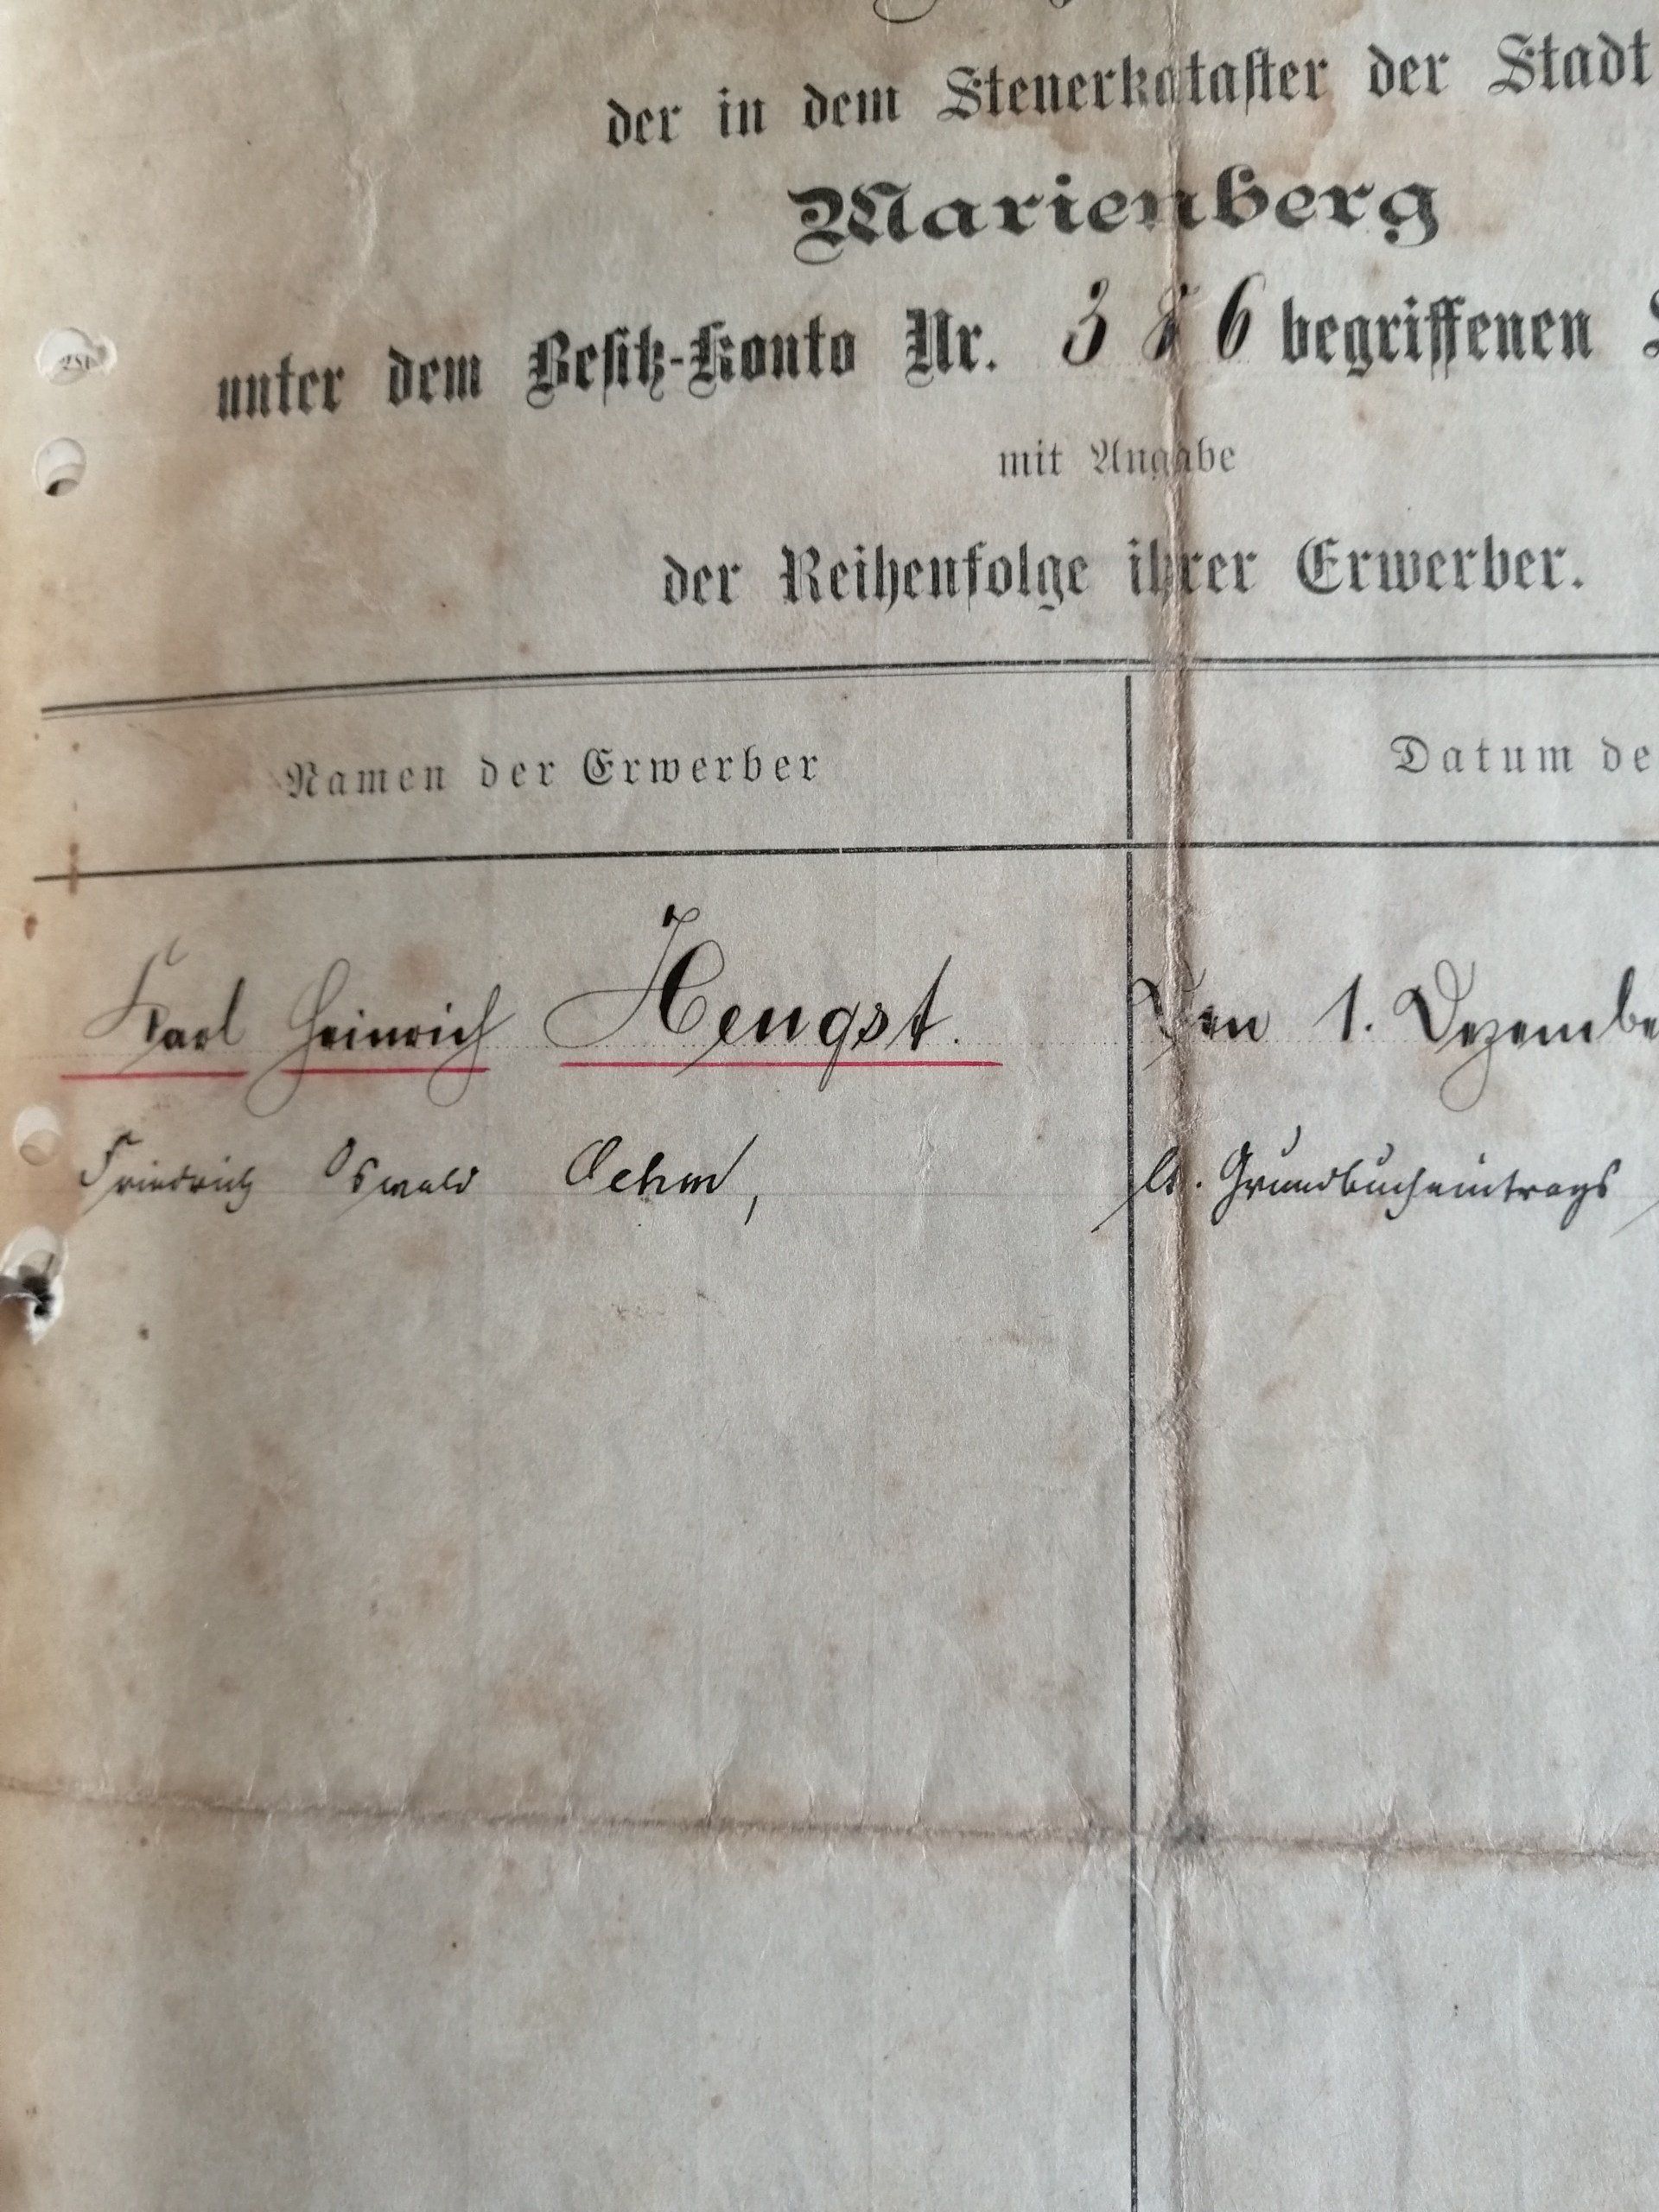 der in dem Steuerkataster der Stadt
Marienberg
unter dem Besitz-Konto Nr. 386 begriffenen
mit Angabe
der Reihenfolge ihrer Erwerber.
Namen der Erwerber Datum de
Karl Heinrich Hengst. Den 1. Dezembe
Friedrich Oswald Oehm, lt. Grundbucheintrags